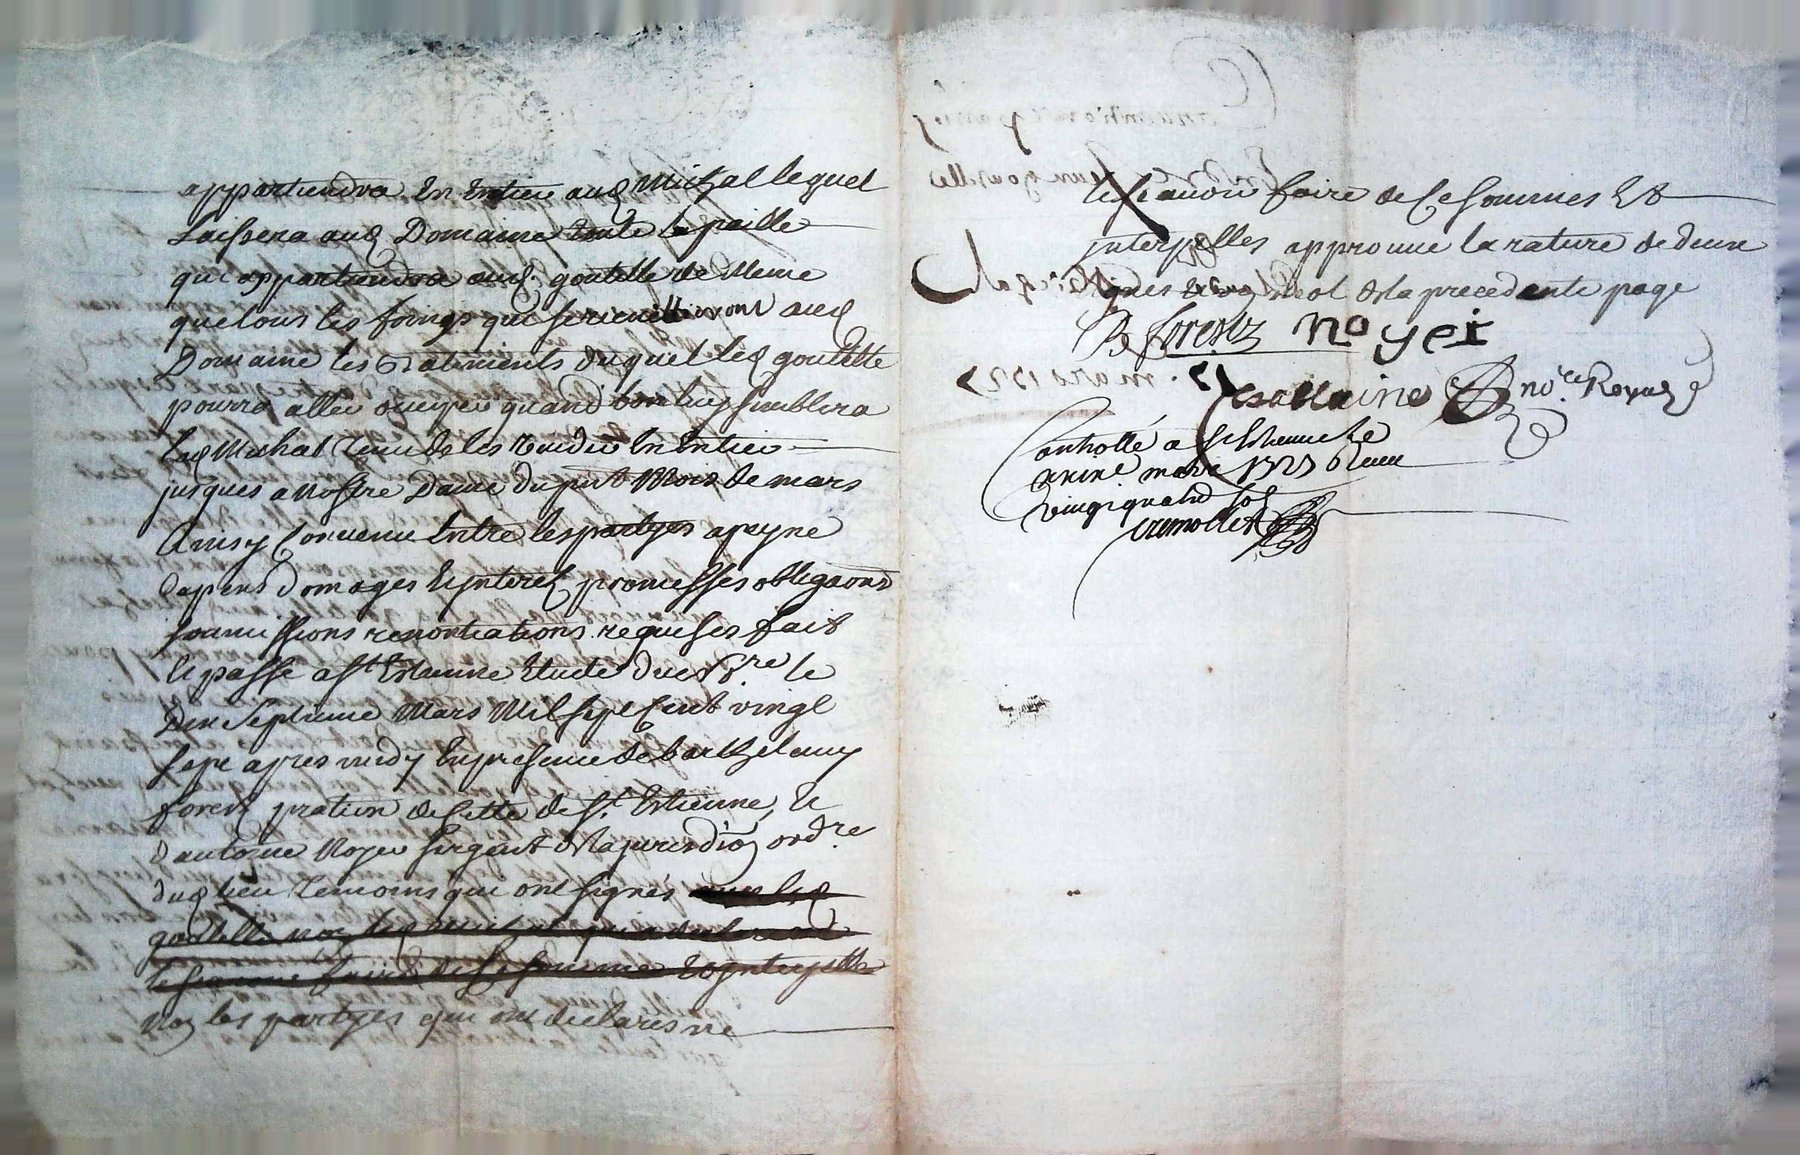 appartiendra En Entier aud Michal lequel
Laissera aud Domaine toute la paille
qui appartiendra aud goutelle de Meme
que tous les foings qui se recuelliront aud
Domaine les Batiments duquel led goutelle
pourra aller occuper quand bon luy semblera
Led Michal tenu de les rendre En Entier
jusques a Nostre Dame du pnt Mois de mars
Ainsy Convenu Entre les partyes a peyne
depens domages Et interets promesses obligaons
soumissions renontiations requises fait
Et passé a St Estienne Etude dud Nre le
Dix Septieme Mars Mil Sept Cent vingt
sept apres midy En presence de barthelemy
forest pratien de cette ville de St Estienne, Et
d'antoine Noyer sergent de la jurisdion ordre
dud lieu temoins qui ont signés avec led
goutelle non led Michal
le scavoir faire de ce sommé Et interpellé
Non les partyes qui ont declarés ne
le scavoir faire de ce sommes Et
interpelles approuve la rature de deux
lignes de la precedante page
B forest noyer
Desallaine no.re Royal
Controllé a St Estienne le
mars 1727 Receu
vingt quatre sols
cremollet
mars 1727